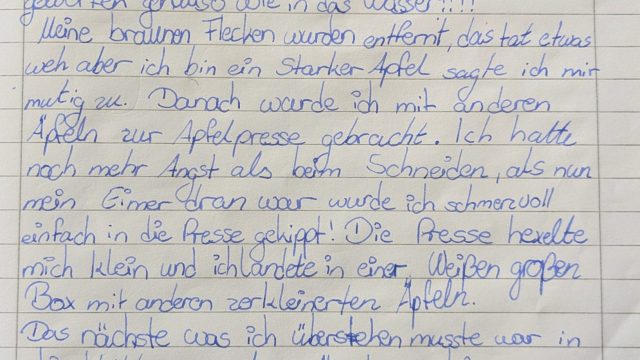 geworfen genauso wie in das Wasser!!!!
Meine braunen Flecken wurden entfernt, das tat etwas
weh aber ich bin ein Starker Apfel sagte ich mir
mutig zu. Danach wurde ich mit anderen
Äpfeln zur Apfelpresse gebracht. Ich hatte
noch mehr Angst als beim Schneiden, als nun
mein Eimer dran war wurde ich schmerzvoll
einfach in die Presse gekippt! Die Presse hexelte
mich klein und ich landete in einer Weißen großen
Box mit anderen zerkleinerten Äpfeln.
Das nächste was ich überstehen musste war in